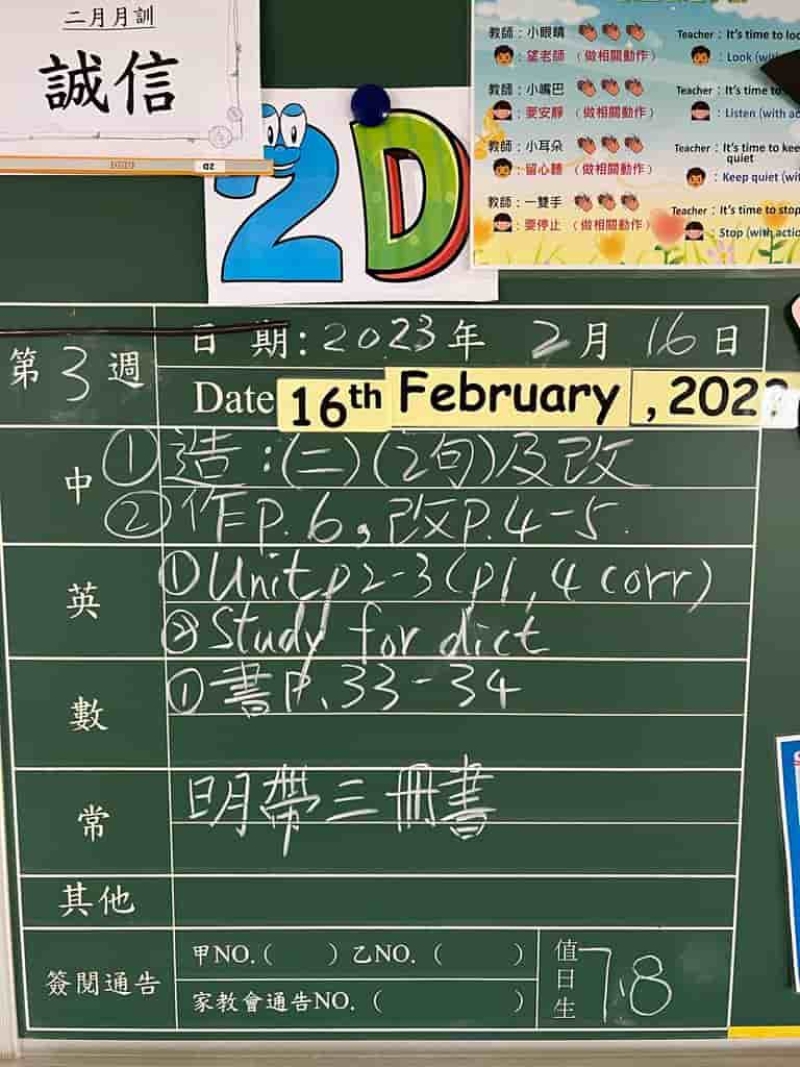 二月月訓
誠信
2D
教師：小眼睛
：望老師（做相關動作）
教師：小嘴巴
：要安靜（做相關動作）
教師：小耳朵
：留心聽（做相關動作）
教師：一雙手
：要停止（做相關動作）
Teacher：It's time to loo
：Look (wit
Teacher：It's time to
：Listen (with ac
Teacher：It's time to kee
quiet
：Keep quiet (wi
Teacher：It's time to stop
：Stop (with actio
第3週
日期：2023年 2月 16日
Date 16th February, 202
中
①造：(二)(2句)及改
②作P.6，改P.4-5.
英
①Unit p2-3 (p1, 4 corr)
②Study for dict
數
①書P.33-34
常
明帶三冊書
其他
簽閱通告
甲NO.( ) 乙NO.( )
家教會通告NO.( )
值日生
7,8